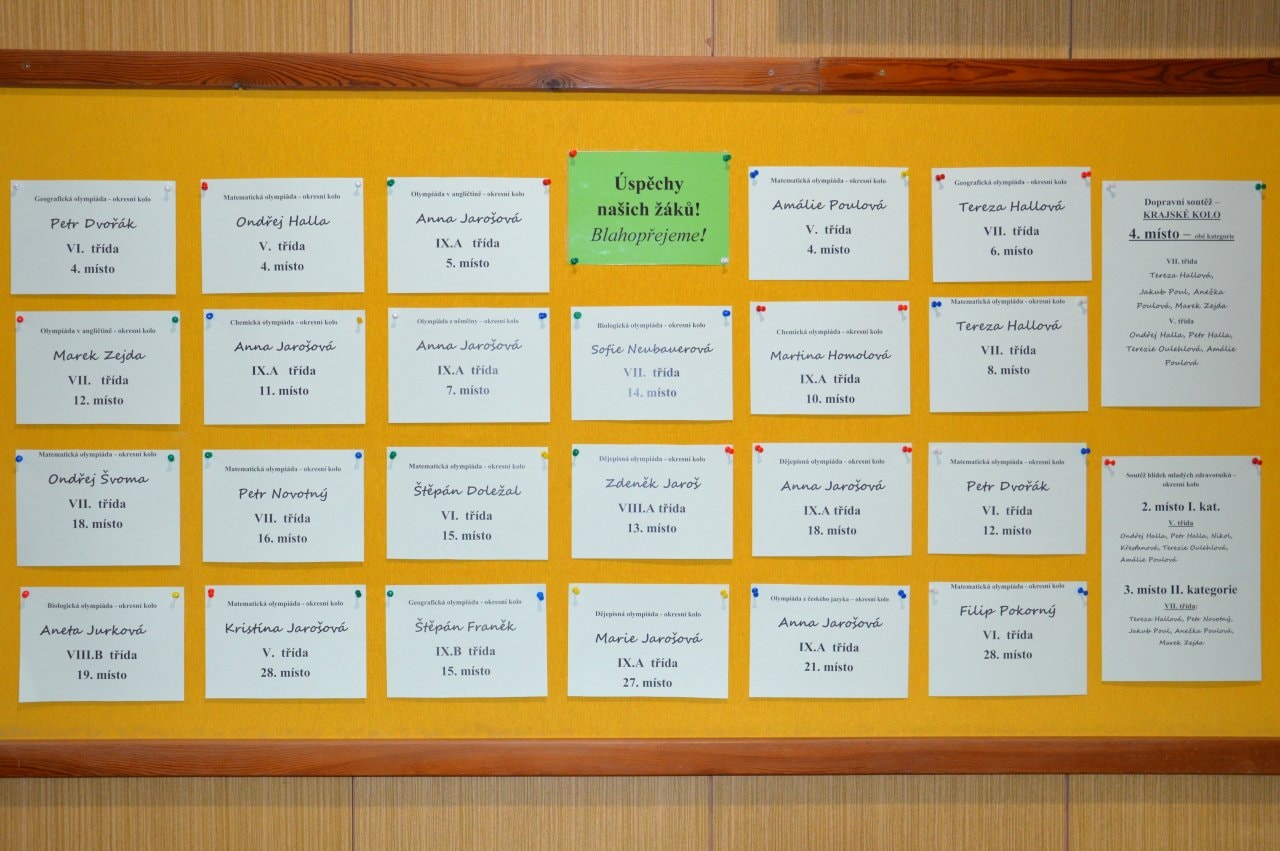 Geografická olympiáda - okresní kolo
Petr Dvořák
VI. třída
4. místo
Matematická olympiáda - okresní kolo
Ondřej Halla
V. třída
4. místo
Olympiáda v angličtině - okresní kolo
Anna Jarošová
IX.A třída
5. místo
Úspěchy
našich žáků!
Blahopřejeme!
Matematická olympiáda - okresní kolo
Amálie Poulová
V. třída
4. místo
Geografická olympiáda - okresní kolo
Tereza Hallová
VII. třída
6. místo
Dopravní soutěž –
KRAJSKÉ KOLO
4. místo – obě kategorie
VII. třída
Tereza Hallová,
Jakub Poul, Anežka
Poulová, Marek Zejda
V. třída
Ondřej Halla, Petr Halla,
Terezie Oulehlová, Amálie
Poulová
Olympiáda v angličtině - okresní kolo
Marek Zejda
VII. třída
12. místo
Chemická olympiáda - okresní kolo
Anna Jarošová
IX.A třída
11. místo
Olympiáda z němčiny – okresní kolo
Anna Jarošová
IX.A třída
7. místo
Biologická olympiáda - okresní kolo
Sofie Neubauerová
VII. třída
14. místo
Chemická olympiáda - okresní kolo
Martina Homolová
IX.A třída
10. místo
Matematická olympiáda - okresní kolo
Tereza Hallová
VII. třída
8. místo
Matematická olympiáda - okresní kolo
Ondřej Švoma
VII. třída
18. místo
Matematická olympiáda - okresní kolo
Petr Novotný
VII. třída
16. místo
Matematická olympiáda - okresní kolo
Štěpán Doležal
VI. třída
15. místo
Dějepisná olympiáda - okresní kolo
Zdeněk Jaroš
VIII.A třída
13. místo
Dějepisná olympiáda - okresní kolo
Anna Jarošová
IX.A třída
18. místo
Matematická olympiáda - okresní kolo
Petr Dvořák
VI. třída
12. místo
Soutěž hlídek mladých zdravotníků –
okresní kolo
2. místo I. kat.
V. třída
Ondřej Halla, Petr Halla, Nikol,
Křesťanová, Terezie Oulehlová,
Amálie Poulová
3. místo II. kategorie
VII. třída:
Tereza Hallová, Petr Novotný,
Jakub Poul, Anežka Poulová,
Marek Zejda
Biologická olympiáda - okresní kolo
Aneta Jurková
VIII.B třída
19. místo
Matematická olympiáda - okresní kolo
Kristina Jarošová
V. třída
28. místo
Geografická olympiáda - okresní kolo
Štěpán Franěk
IX.B třída
15. místo
Dějepisná olympiáda - okresní kolo
Marie Jarošová
IX.A třída
27. místo
Olympiáda z českého jazyka – okresní kolo
Anna Jarošová
IX.A třída
21. místo
Matematická olympiáda - okresní kolo
Filip Pokorný
VI. třída
28. místo